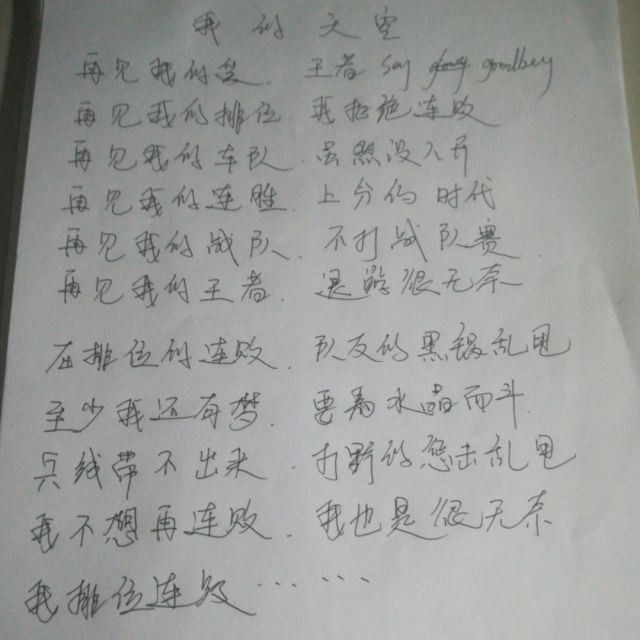 我的天空
再见我的爱 王者 say goodbey
再见我的排位 我拒绝连败
再见我的车队 虽然没人开
再见我的连胜 上分的时代
再见我的战队 不打战队赛
再见我的王者 退游很无奈
在排位的连败 队友的黑锅乱甩
至少我还有梦 要为水晶而斗
兵线带不出来 打野的惩击乱甩
我不想再连败 我也是很无奈
我排位连败……